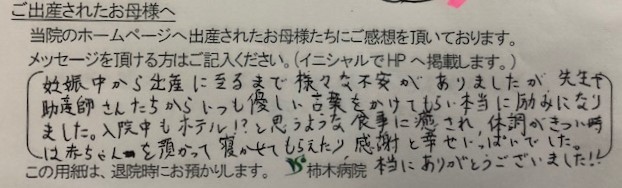 ご出産されたお母様へ
当院のホームページへ出産されたお母様たちにご感想を頂いております。
メッセージを頂ける方はご記入ください。(イニシャルでHPへ掲載します。)
妊娠中から出産に至るまで様々な不安がありましたが、先生や
助産師さんたちからいつも優しい言葉をかけてもらい本当に励みになり
ました。入院中もホテル!?と思うような食事に癒され、体調がきつい時
は赤ちゃんを預かって寝かせてもらえたり、感謝と幸せいっぱいでした。
本当にありがとうございました!!
この用紙は、退院時にお預かりします。 柿木病院